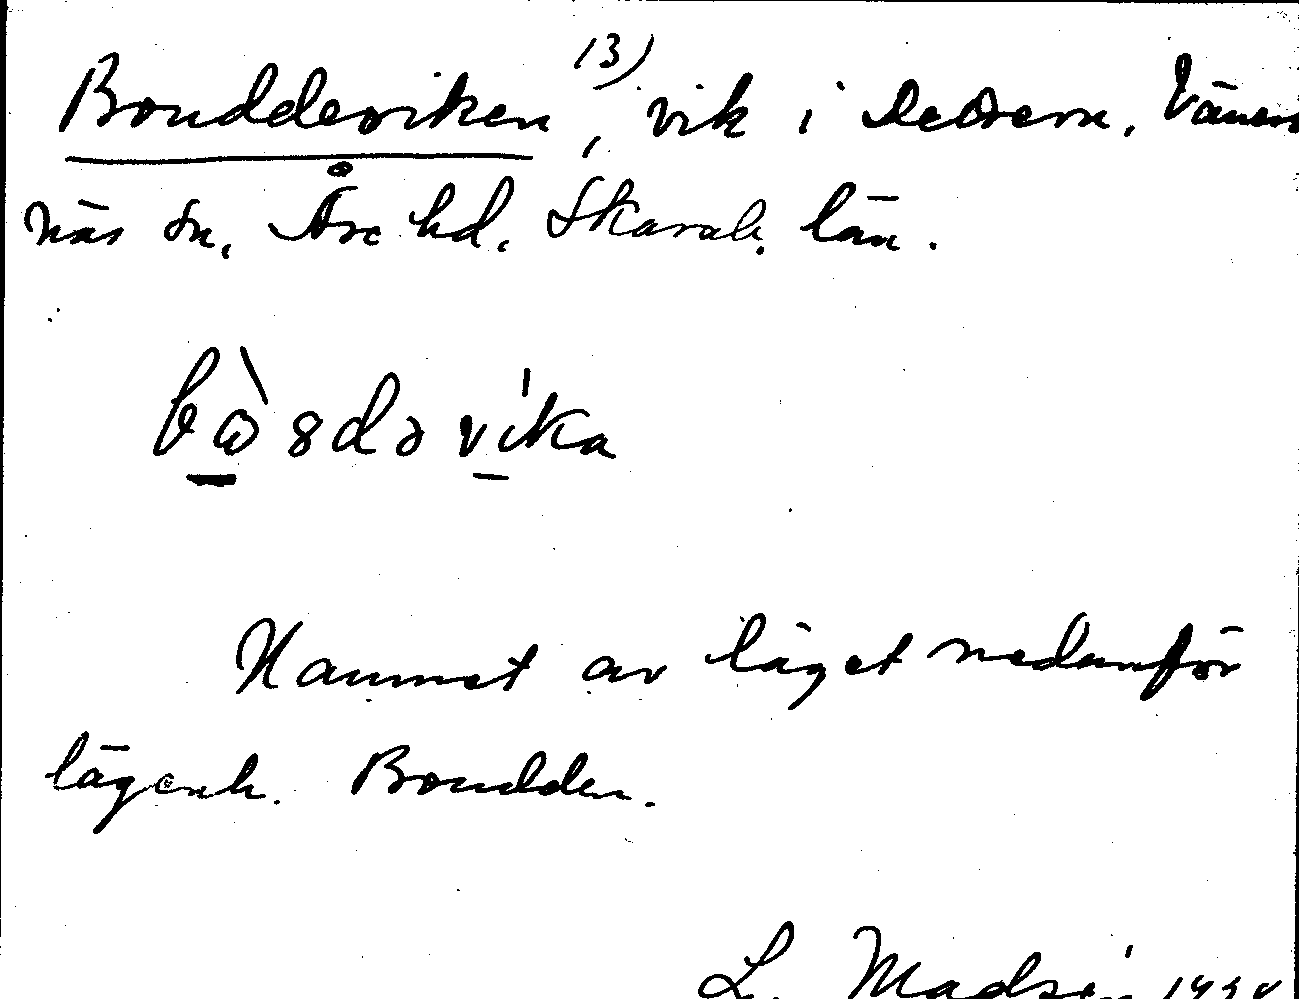 Bouddeviken 13), vik i Dettern, Väners
näs sn, Åse hd, Skarab. län.
bò̱sdəv̱ı̍ka
Namnet av läget nedanför
lägenh. Boudden.
L. Madsén